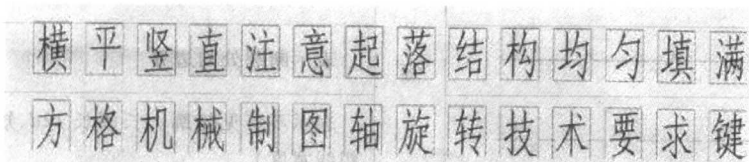 横平竖直注意起落结构均匀填满
方格机械制图轴旋转技术要求键